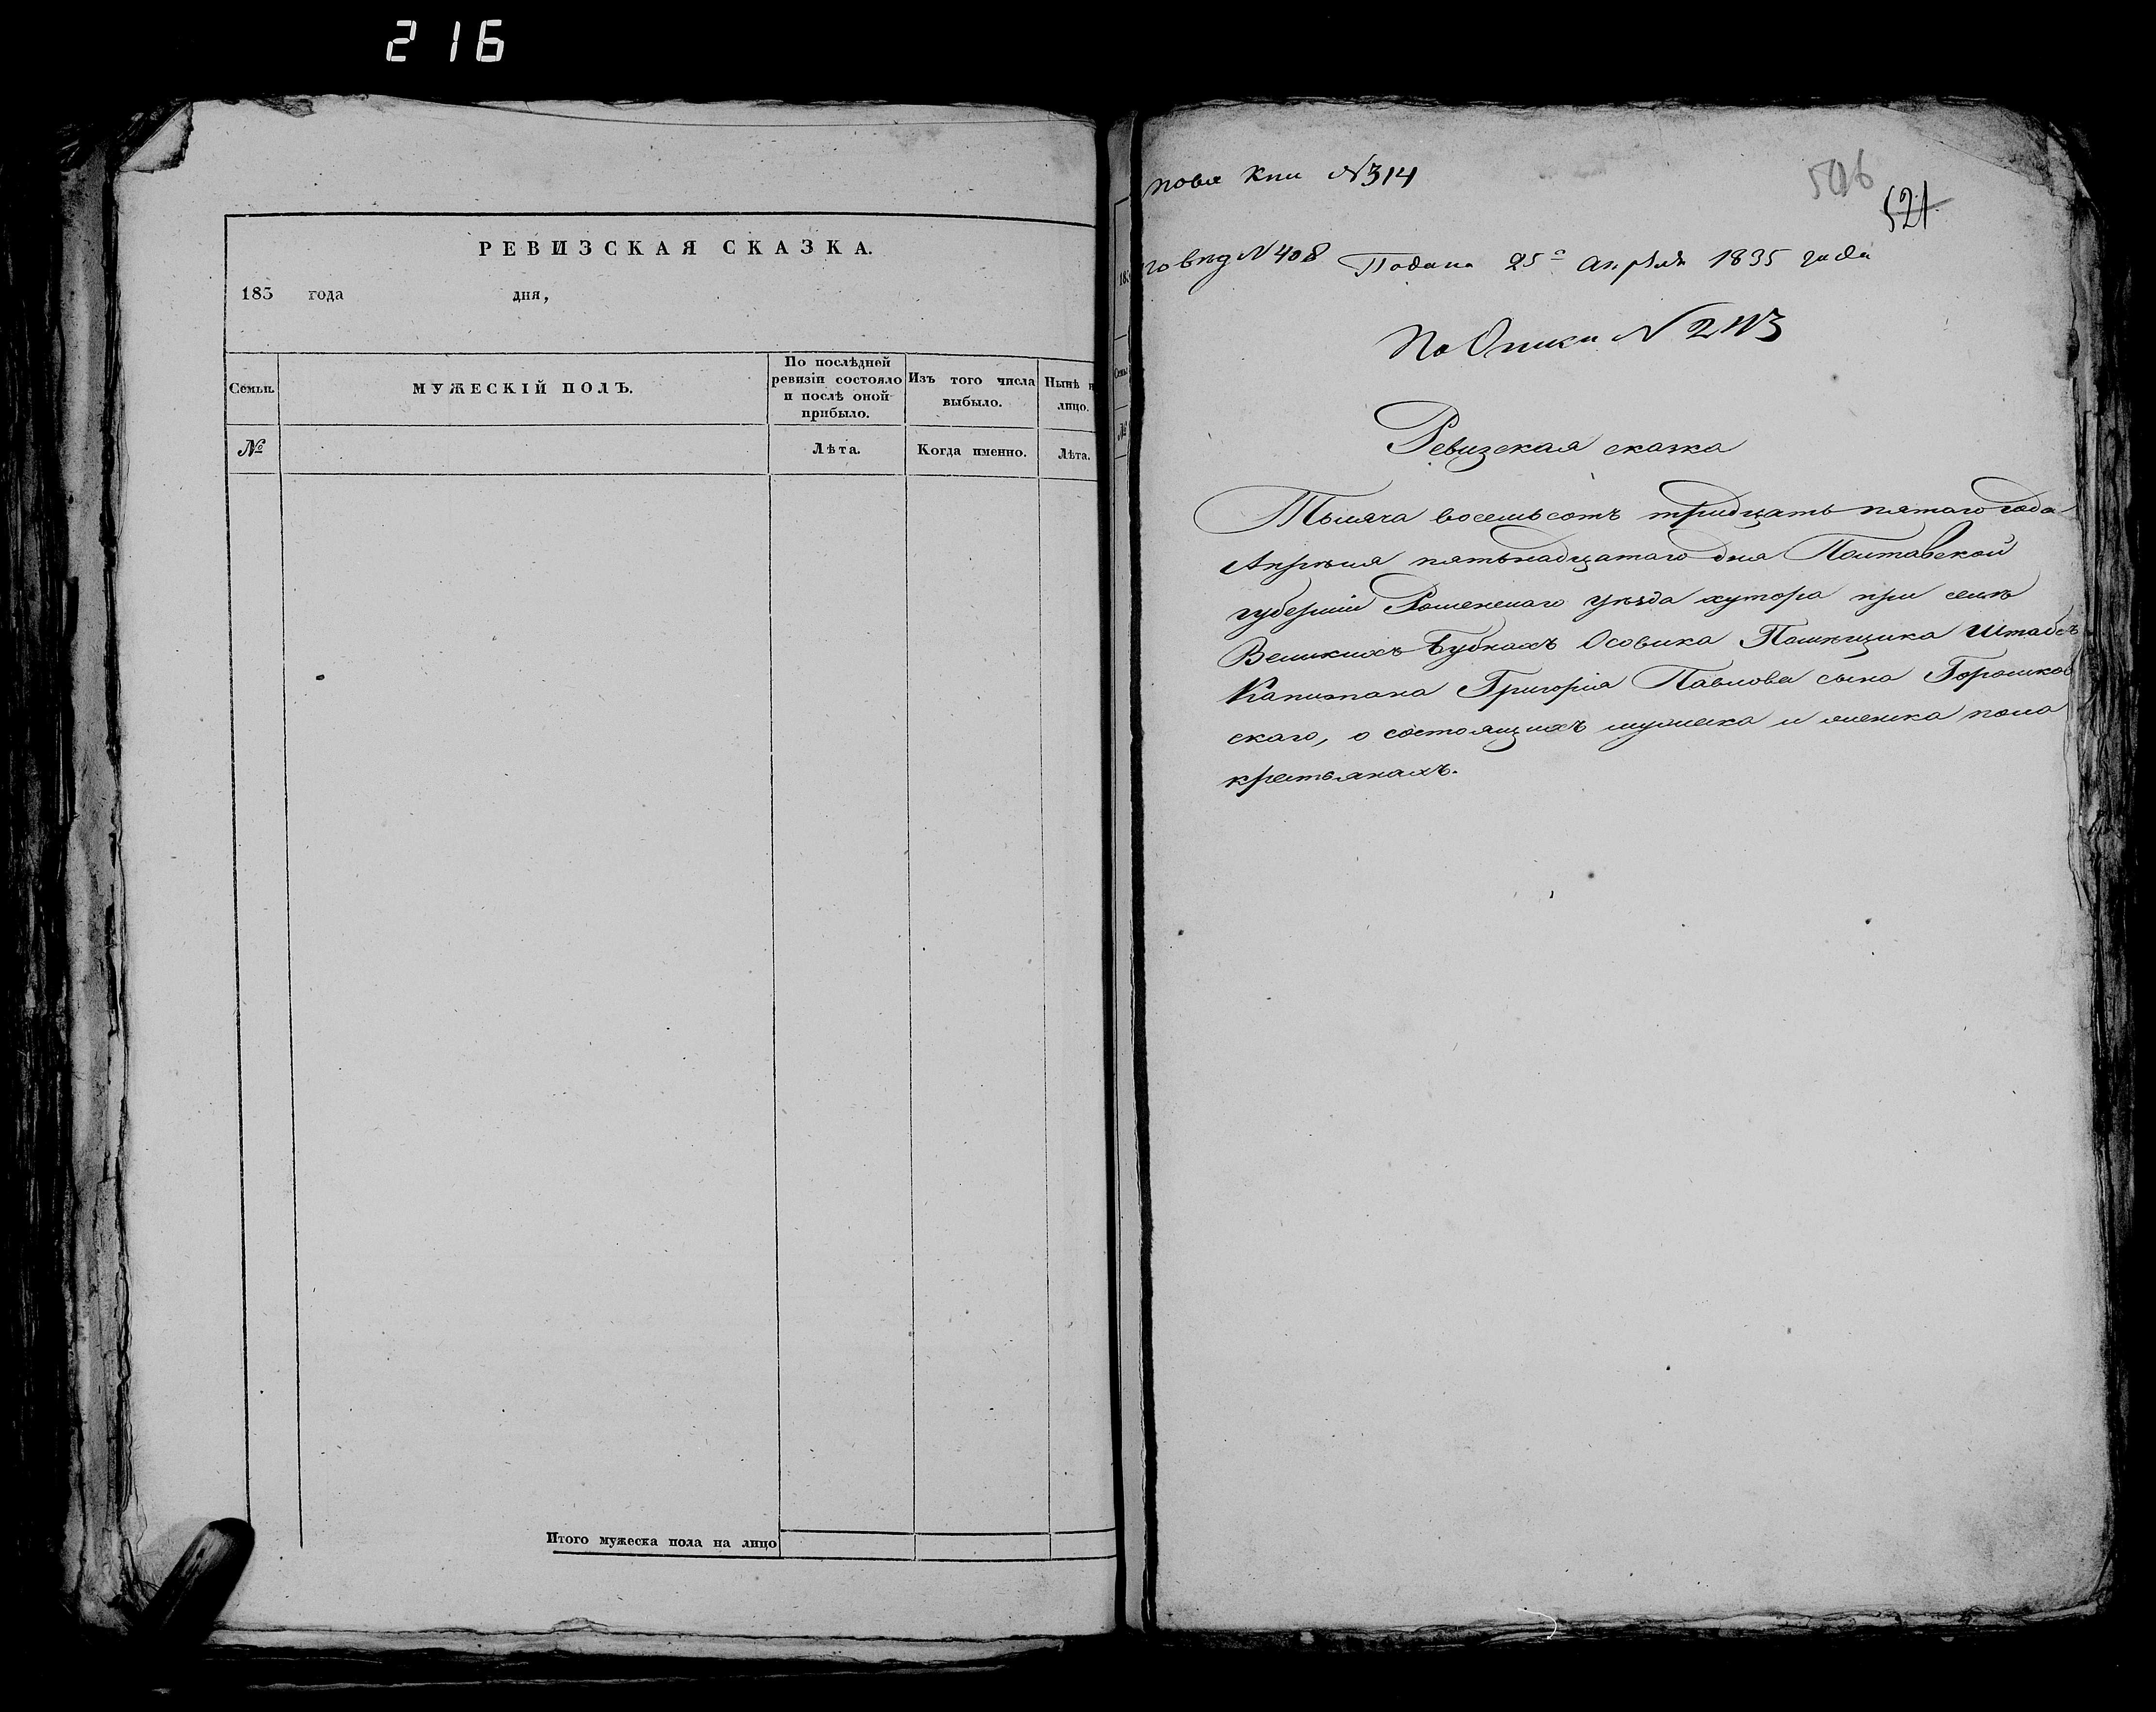 216
РЕВИЗСКАЯ СКАЗКА.
183 года дня,
Семьи.
МУЖЕСКІЙ ПОЛЪ.
По послѣдней
ревизіи состояло
и послѣ оной
прибыло.
Изъ того числа
выбыло.
Нынѣ н
лицо.
№
Лѣта.
Когда именно.
Лѣта.
Итого мужеска пола на лицо
183
№
новая Кни №314
506
521
№408 Подана 25го апрѣля 1835 года
По Описи №
Ревизская сказка
Тысяча восемьсотъ тридцать пятаго года
Апрѣля пятьнадцатаго дня Полтавской
губерніи Роменскаго уѣзда хутора при селѣ
Великихъ Бубнахъ Осовика Помѣщика Штабсъ
Капитана Григорія Павлова сына Горошков
скаго, о состоящихъ мужеска и женска пола
крестьянахъ.